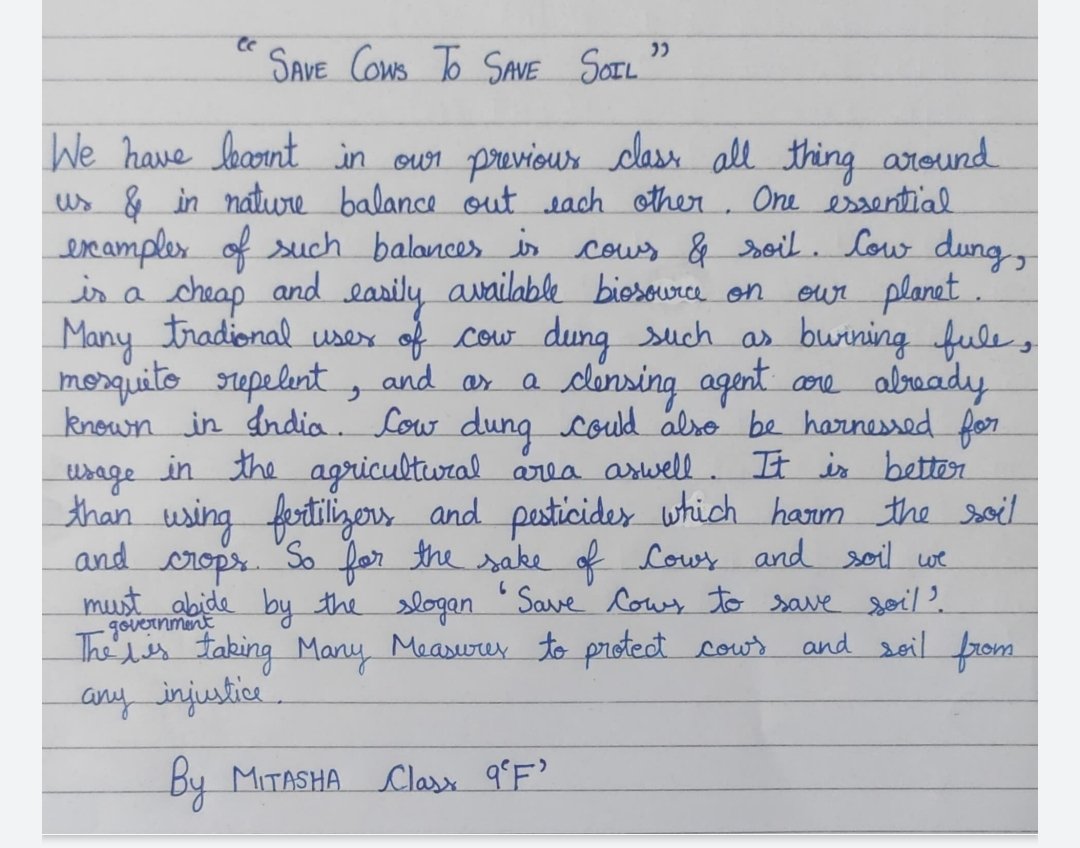 “SAVE COWS TO SAVE SOIL”
We have learnt in our previous class all thing around
us & in nature balance out each other. One essential
examples of such balances is cows & soil. Cow dung,
is a cheap and easily available biosource on our planet.
Many tradional uses of cow dung such as burning fule,
mosquito repelent, and as a clensing agent are already
known in India. Cow dung could also be harnessed for
usage in the agricultural area aswell. It is better
than using fertilizers and pesticides which harm the soil
and crops. So for the sake of Cows and soil we
must abide by the slogan ‘Save Cows to save soil’.
government
The is taking Many Measures to protect cows and soil from
any injustice.
By MITASHA Class 9‘F’